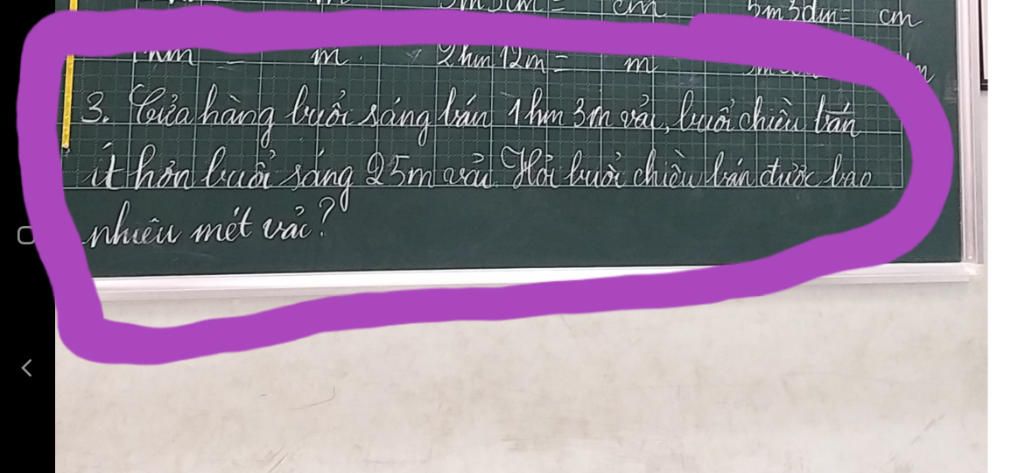 5m3dm= cm
1hm = m. 2hm 12m= m
3. Cửa hàng buổi sáng bán 1hm 3m vải, buổi chiều bán
ít hơn buổi sáng 25m vải. Hỏi buổi chiều bán được bao
nhiêu mét vải?